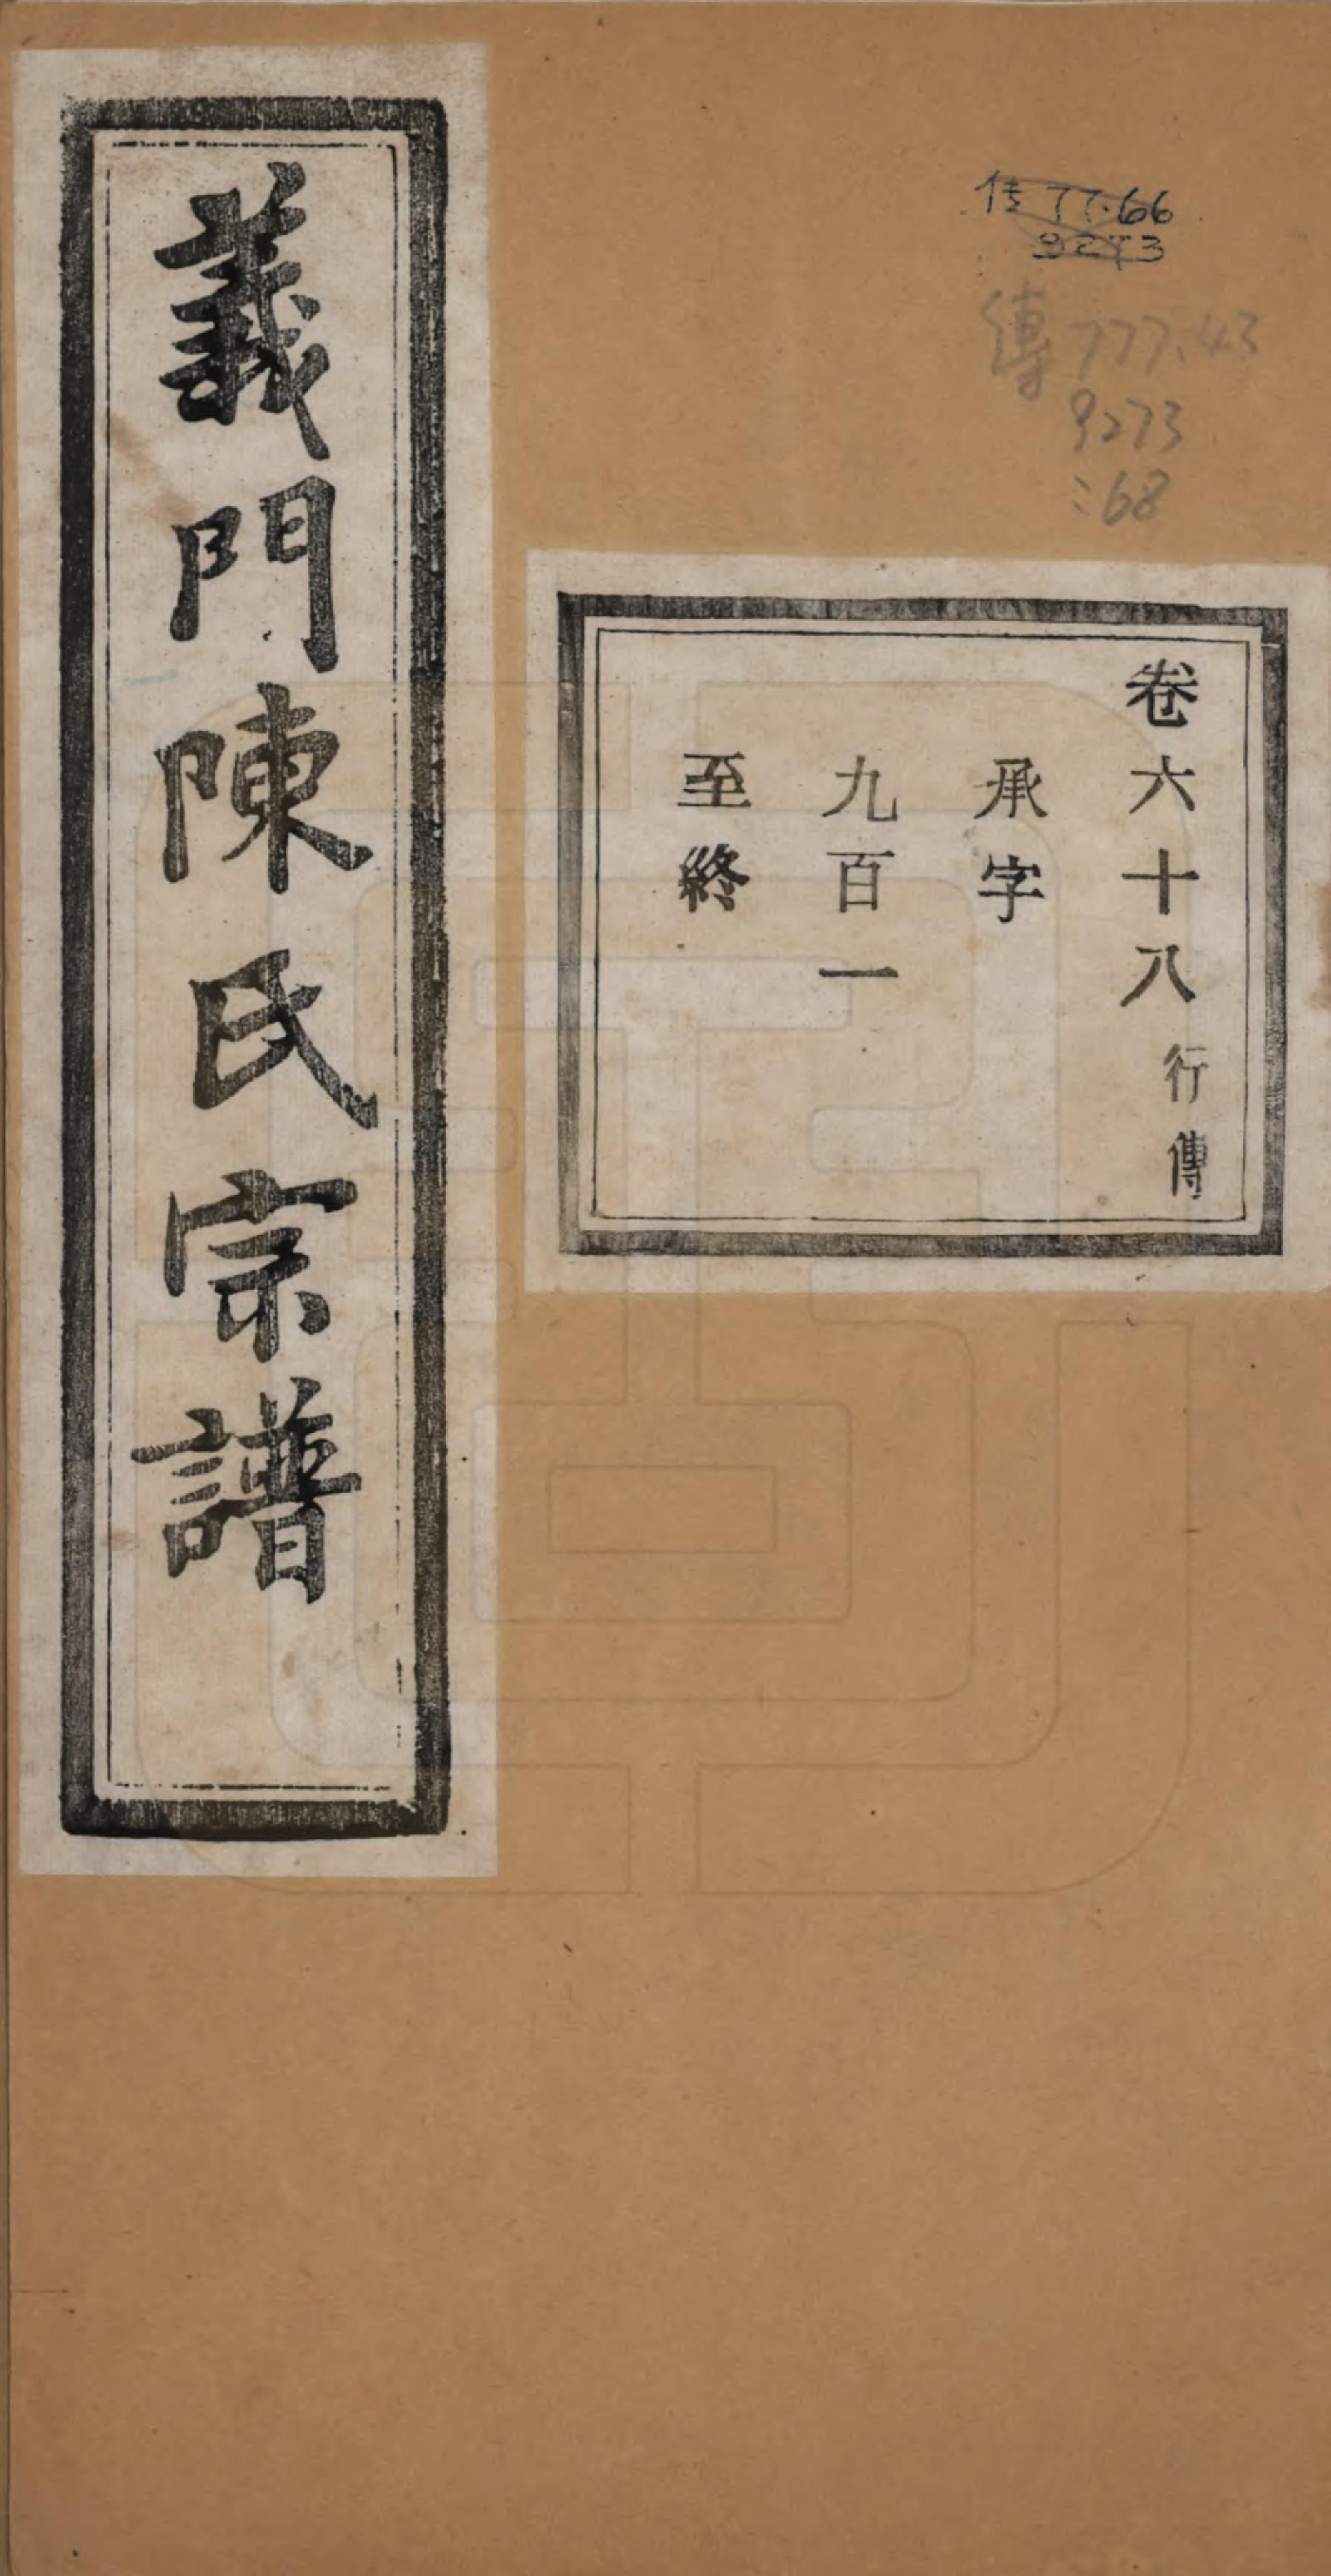 義門陳氏宗譜
传 77.66
9273
傳 777.43
9273
:68
卷六十八 行傳
承字
九百一
至終